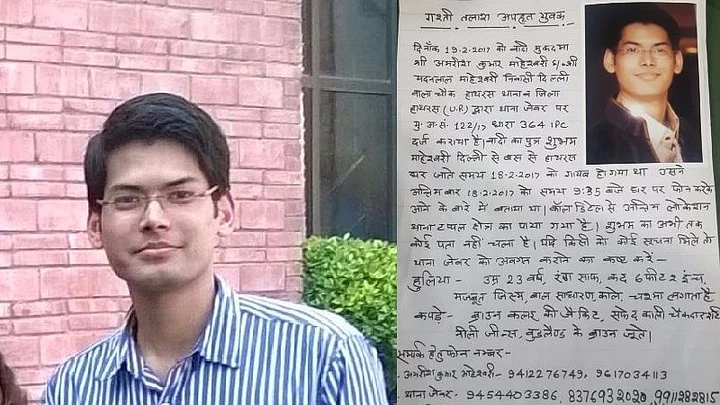 गश्ती तलाश अपहृत युवक
दिनाँक 19-2-2017 को वादी मुकदमा
श्री अमरीश कुमार माहेश्वरी S/० श्री
मदनलाल माहेश्वरी निवासी दिल्ली
वाला चौक हाथरस थाना व जिला
हाथरस (U.P.) द्वारा थाना जेवर पर
मु.अ.सं. 122/17 धारा 364 IPC
दर्ज कराया है। वादी का पुत्र शुभम
माहेश्वरी दिल्ली से बस से हाथरस
घर जाते समय 18-2-2017 को गायब हो गया था उसने
अन्तिम बार 18-2-2017 को समय 9:35 बजे घर पर फोन करके
आने के बारे में बताया था। कॉल डिटेल से अन्तिम लोकेशन
थाना टप्पल क्षेत्र का पाया गया है। शुभम का अभी तक
कोई पता नहीं चला है। यदि किसी को कोई सूचना मिले तो
थाना जेवर को अवगत कराने का कष्ट करें-
हुलिया - उम्र 23 वर्ष, रंग साफ, कद 6 फीट 2 इन्च,
मजबूत जिस्म, बाल साधारण काले, चश्मा लगाता है
कपड़े - ब्राउन कलर की जैकिट, सफेद काली चैकदार शर्ट
नीली जीन्स, वुडलैण्ड के ब्राउन जूते।
सम्पर्क हेतु फोन नम्बर-
अमरीश कुमार माहेश्वरी- 9412276749, 9617034113
थाना जेवर- 9454403386, 8376932020, 9911282815